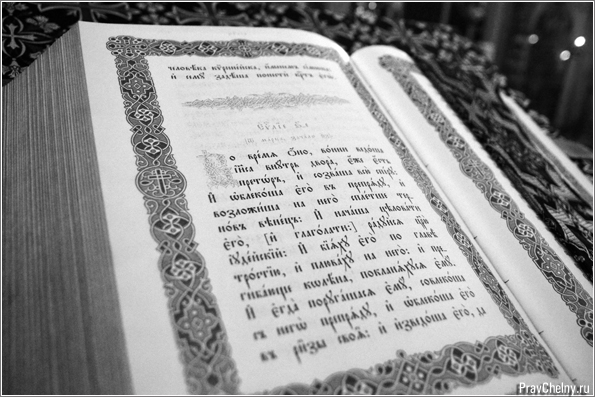 человѣка кѷринейска, именемъ
и҆ семꙋ̀ задѣ́ша понестѝ крⷭ҇тъ є҆гѡ̀.
Во вре́мѧ ѻ҆́но, во́ини ведо́ша
і҆и҃са внꙋ́трь двора̀, є҆́же є҆́сть
прето́ръ: и҆ созва́ша всю̀ спі́рꙋ.
И҆ ѡ҆блеко́ша є҆го̀ въ препрѧ́дꙋ, и҆
возложи́ша на него̀ спле́тше тер-
но́въ вѣне́цъ. И҆ нача́ша цѣлова́ти
є҆го̀, [и҆ глаго́лати:] ра́дꙋйсѧ цр҃ю̀
і҆ꙋде́йскїй: И҆ бїѧ́хꙋ є҆го̀ по главѣ̀
тро́стїю, и҆ плева́хꙋ на него̀: и҆ пре-
гиба́юще кѡлѣ́на, покланѧ́хꙋсѧ є҆мꙋ̀.
И҆ є҆гда̀ порꙋга́шасѧ є҆мꙋ̀, совлеко́ша
съ негѡ̀ препрѧ́дꙋ, и҆ ѡ҆блеко́ша є҆го̀
въ ри̑зы своѧ̑: и҆ и҆зведо́ша є҆го̀, да
PravChelny.ru